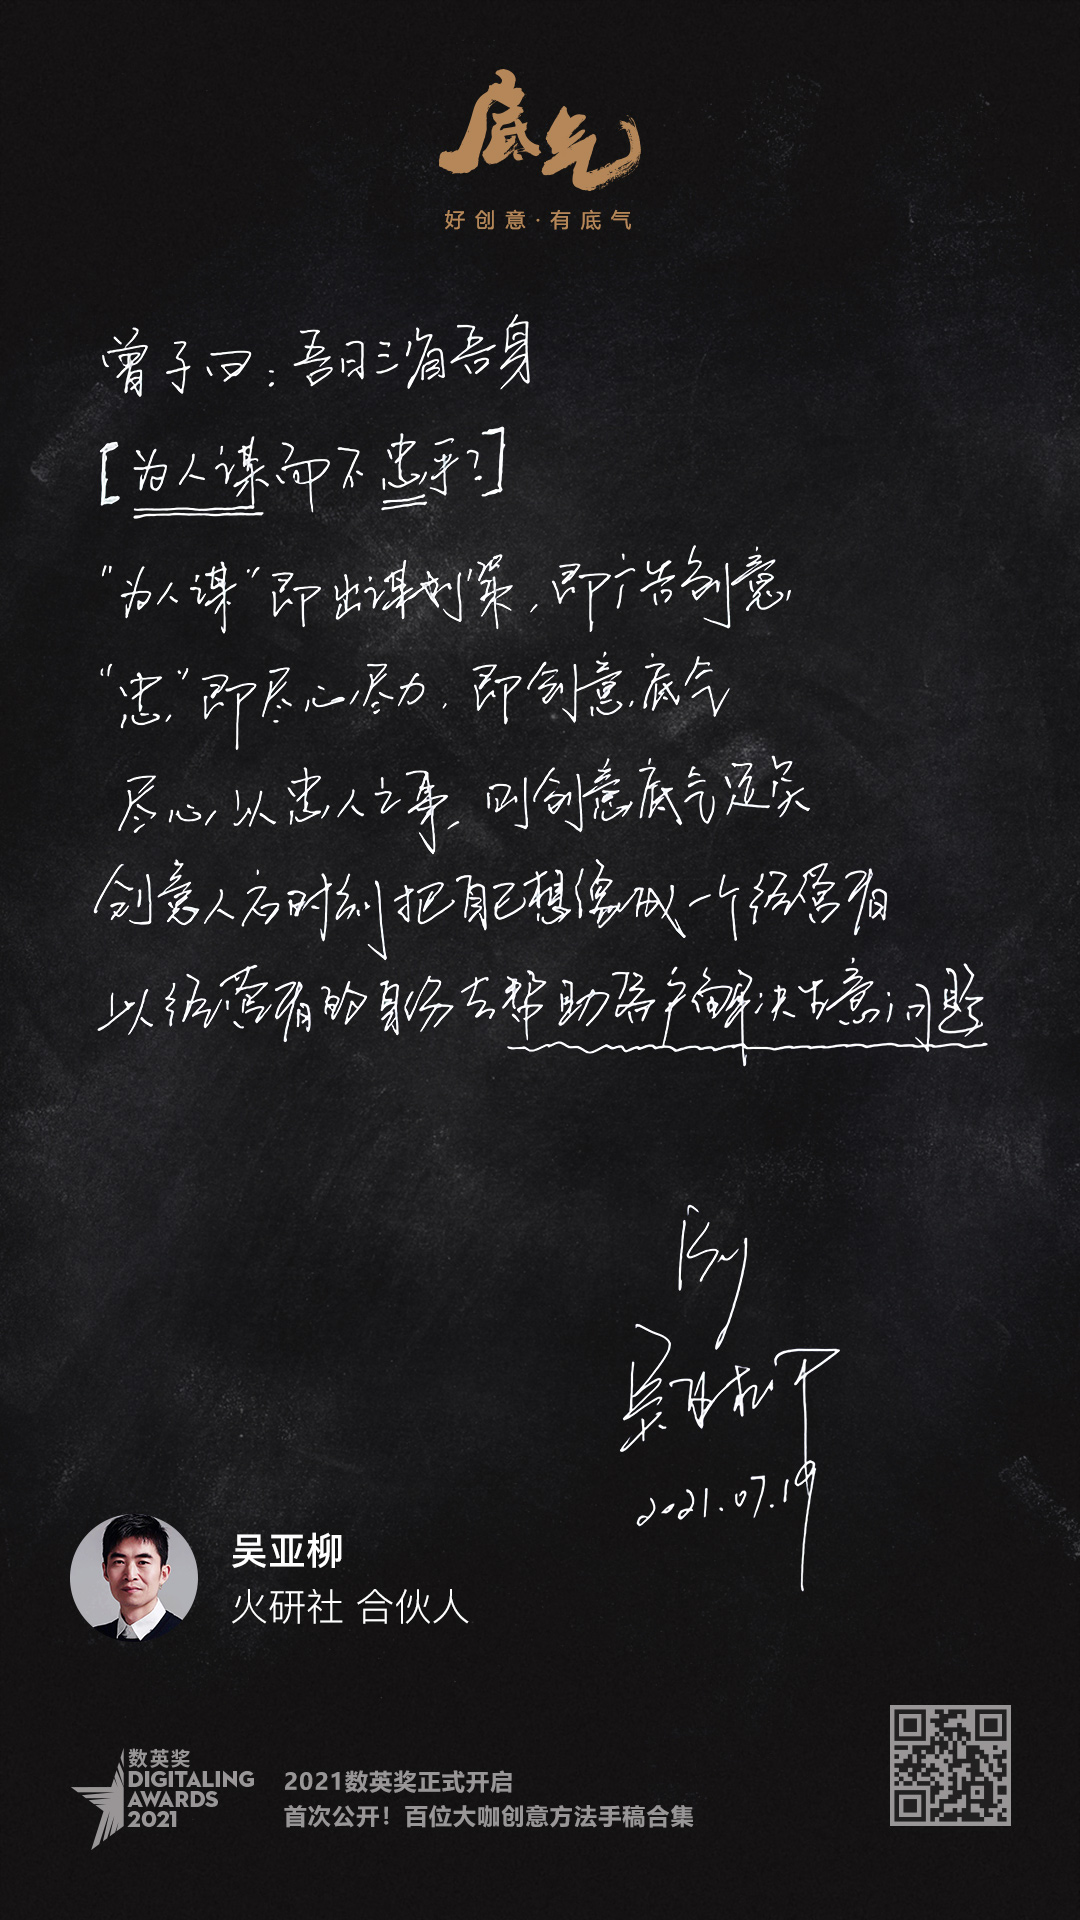 底气
好创意·有底气
曾子曰：吾日三省吾身
[为人谋而不忠乎？]
“为人谋”即出谋划策，即广告创意
“忠”即尽心尽力，即创意底气
尽心以忠人之事，则创意底气足矣
创意人应时刻把自己想像成一个经营者
以经营者的身份去帮助客户解决生意问题
By
吴亚柳
2021.07.19
吴亚柳
火研社 合伙人
数英奖
DIGITALING
AWARDS
2021
2021数英奖正式开启
首次公开！百位大咖创意方法手稿合集